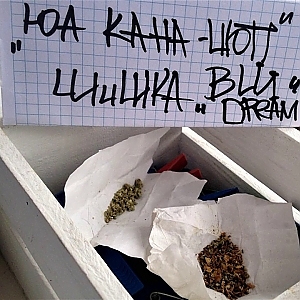 "ЮА КАНА-ШОП"
ШИШКА „ВЦЦ
DREAM